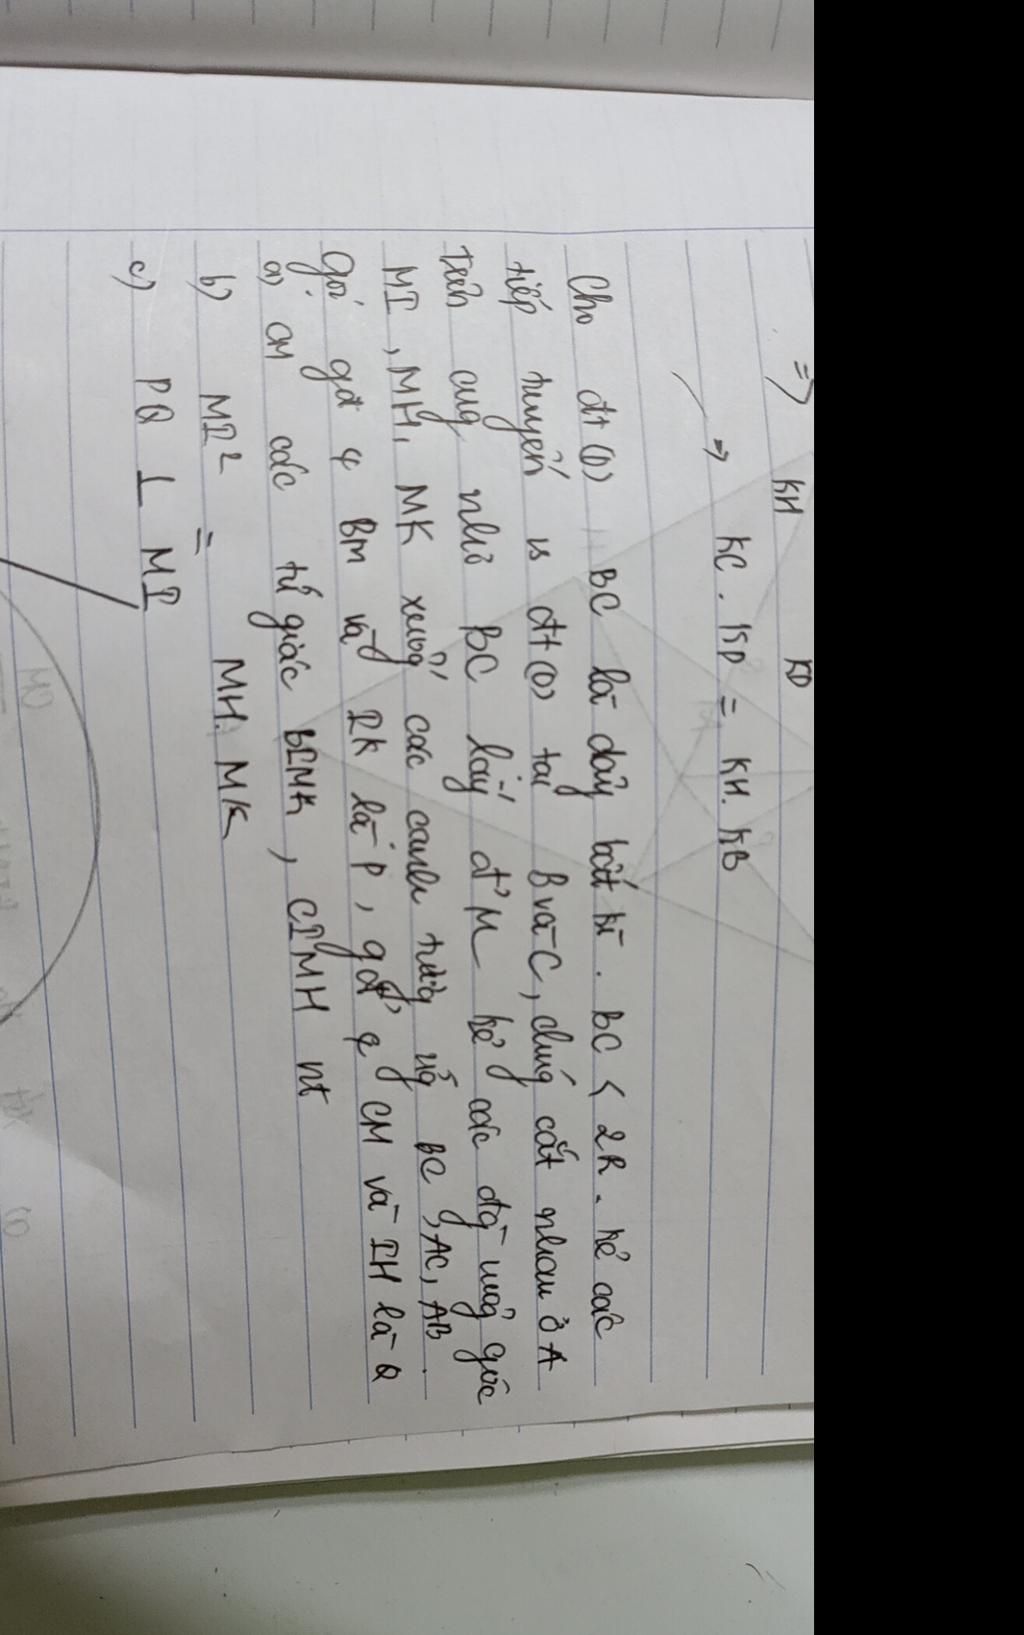 => KH KD
=> KC. KD = KH. KB
Cho đt (O) BC là dây bất kì. BC < 2R. kẻ các
tiếp tuyến vs đt (O) tại B và C, chúng cắt nhau ở A
trên cug nhỏ BC lấy đ' M kẻ các đg vuôg góc
MI, MH, MK xuốg các cạnh tươg ứg BC, AC, AB.
gọi gđ BM và IK là P, gđ CM và IH là Q
a) CM các tứ giác BIMK, CIMH nt
b) MI² = MH. MK
c) PQ ⊥ MI